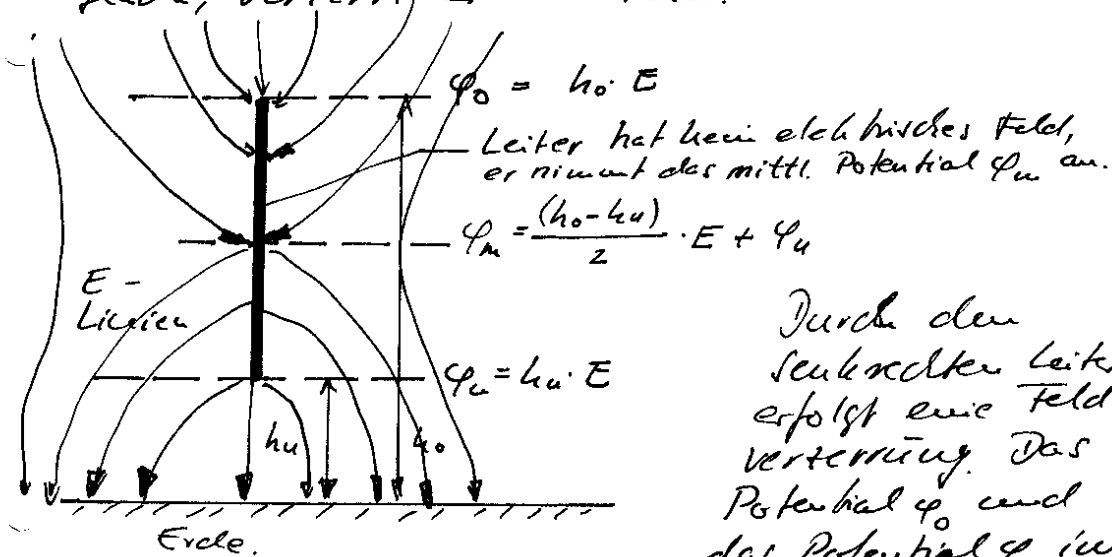 φ₀ = h₀ · E
Leiter hat kein elektrisches Feld,
er nimmt das mittl. Potential φₘ an.
φₘ = (h₀ - hᵤ) / 2 · E + φᵤ
E -
Linien
φᵤ = hᵤ · E
hᵤ
h₀
Erde.
Durch den
senkrechten Leiter
erfolgt eine Feld
verzerrung. Das
Potential φ₀ und
das Potential φ im